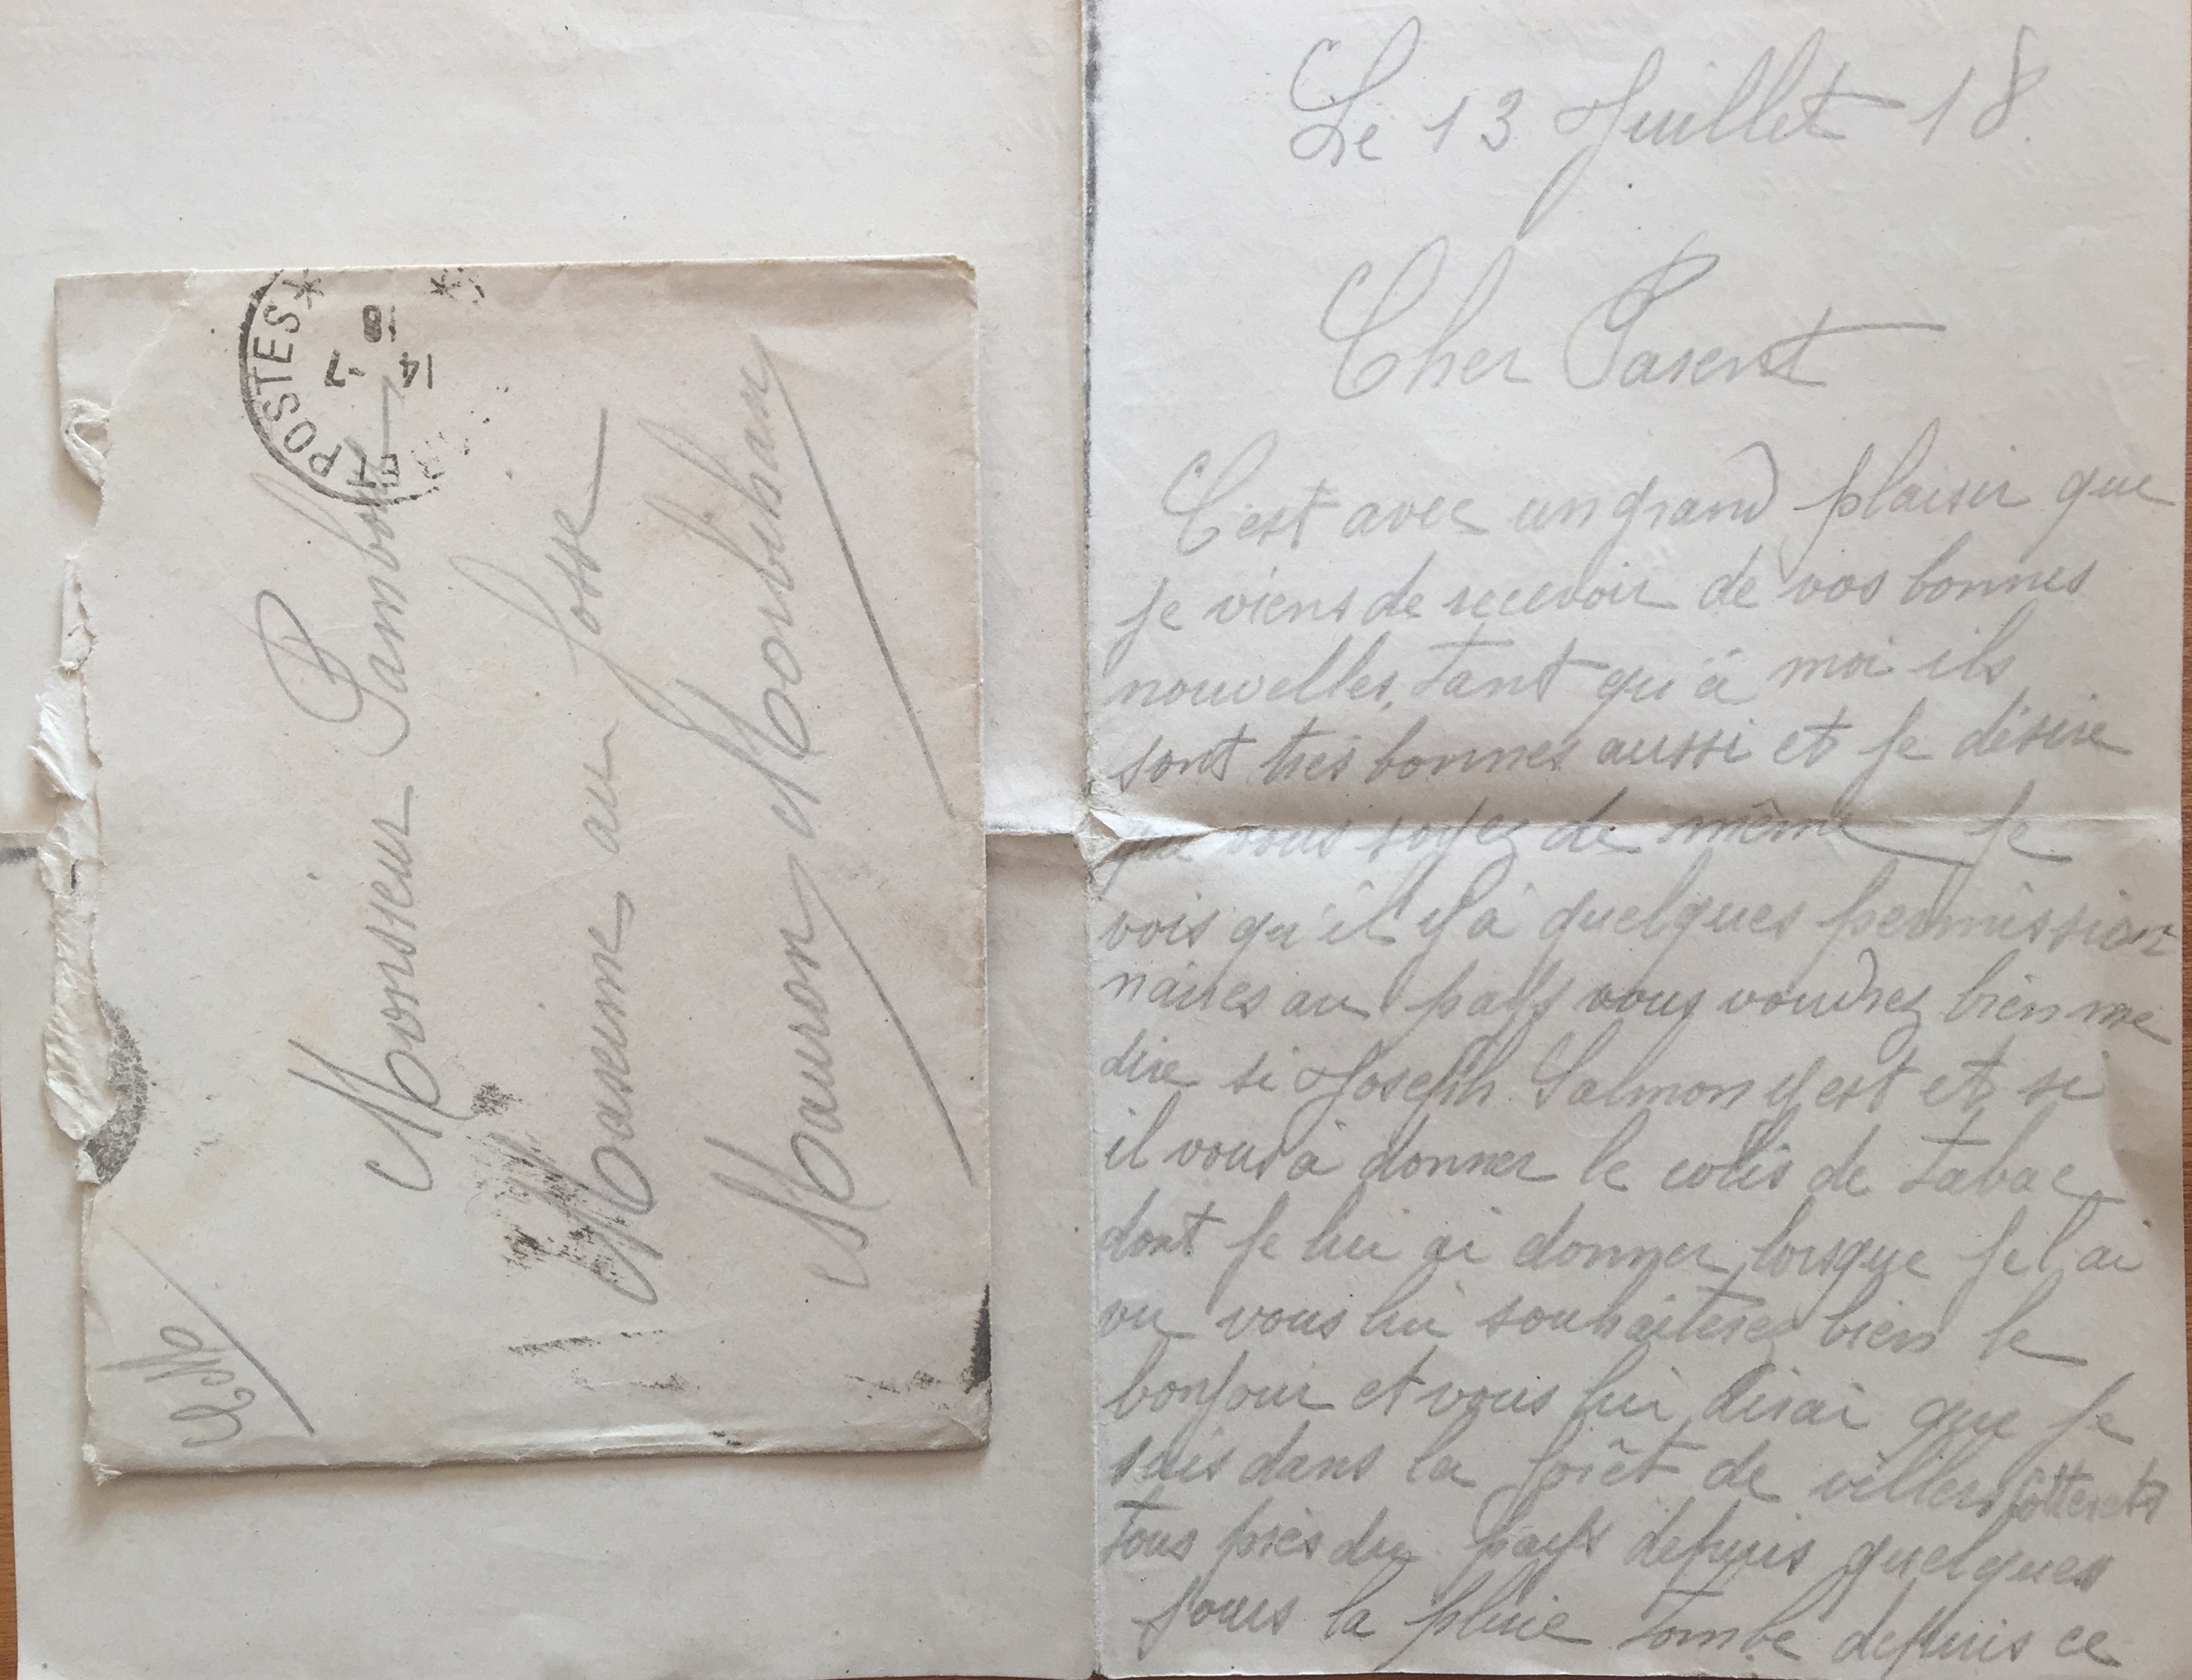 ET POSTES
14 -7
18
F.M.
Monsieur
Maxime au Fosse
Mauron Morbihan
Le 13 Juillet 18.
Cher Parent
C'est avec un grand plaisir que
je viens de recevoir de vos bonnes
nouvelles, tant qu'à moi ils
sont très bonnes aussi et je désire
que vous soyez de même Je
vois qu'il y à quelques permission
naires au pays vous voudrez bien me
dire si Joseph Salmon y est et si
il vous à donner le colis de tabac
dont je lui ai donner lorsque je l'ai
vu vous lui souhaiterez bien le
bonjour et vous lui dirai que je
suis dans la forêt de villers cotterets
tous près du pays depuis quelques
jours la pluie tombe depuis ce